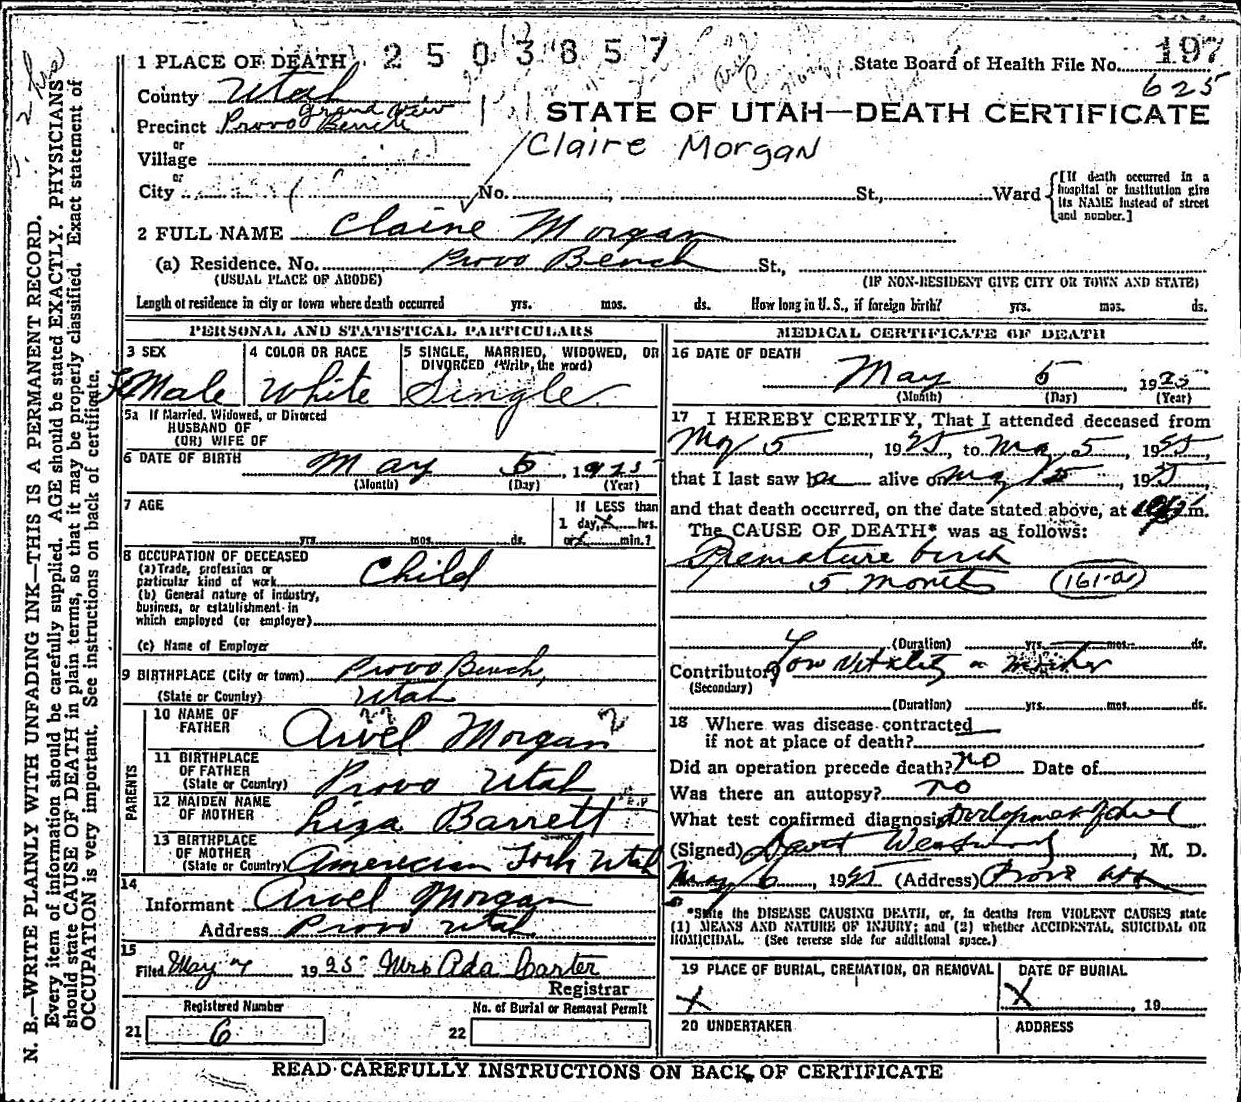 1 PLACE OF DEATH 2503857 State Board of Health File No. 197
625
County Utah
Grand View
Precinct Provo Bench
STATE OF UTAH—DEATH CERTIFICATE
or
Village
Claire Morgan
or
City No. St., Ward [If death occurred in a hospital or institution give its NAME instead of street and number.]
2 FULL NAME Claire Morgan
(a) Residence. No. Provo Bench St.,
(USUAL PLACE OF ABODE) (IF NON-RESIDENT GIVE CITY OR TOWN AND STATE)
Length of residence in city or town where death occurred yrs. mos. ds. How long in U. S., if foreign birth? yrs. mos. ds.
PERSONAL AND STATISTICAL PARTICULARS
3 SEX
4 COLOR OR RACE
5 SINGLE, MARRIED, WIDOWED, OR
DIVORCED (Write, the word)
Male White Single
5a If Married, Widowed, or Divorced
HUSBAND OF
(OR) WIFE OF
6 DATE OF BIRTH May 5, 1925
(Month) (Day) (Year)
7 AGE
If LESS than
1 day, hrs.
yrs. mos. ds. or min.?
8 OCCUPATION OF DECEASED
(a) Trade, profession or
particular kind of work Child
(b) General nature of industry,
business, or establishment in
which employed (or employer)
(c) Name of Employer
9 BIRTHPLACE (City or town) Provo Bench,
(State or Country) Utah
PARENTS
10 NAME OF
FATHER Arvel Morgan
11 BIRTHPLACE
OF FATHER
(State or Country) Provo Utah
12 MAIDEN NAME
OF MOTHER Liza Barrett
13 BIRTHPLACE
OF MOTHER
(State or Country) Amerecian Fork Utah
14
Informant Arvel Morgan
Address Provo Utah
15
Filed May 7 1925 Mrs Ada Carter
Registrar
Registered Number
21 6
No. of Burial or Removal Permit
22
MEDICAL CERTIFICATE OF DEATH
16 DATE OF DEATH
May 5, 1925
(Month) (Day) (Year)
17 I HEREBY CERTIFY, That I attended deceased from
May 5, 1925, to May 5, 1925,
that I last saw h alive on May 5, 1925,
and that death occurred, on the date stated above, at m.
The CAUSE OF DEATH* was as follows:
Premature birth
5 months (161-a)
(Duration) yrs. mos. ds.
Contributory Low Vitality mother
(Secondary)
(Duration) yrs. mos. ds.
18 Where was disease contracted
if not at place of death?
Did an operation precede death? no Date of
Was there an autopsy? no
What test confirmed diagnosis
(Signed) Westwood, M. D.
May 6, 1925 (Address) Provo Utah
*State the DISEASE CAUSING DEATH, or, in deaths from VIOLENT CAUSES state
(1) MEANS AND NATURE OF INJURY; and (2) whether ACCIDENTAL, SUICIDAL OR
HOMICIDAL. (See reverse side for additional space.)
19 PLACE OF BURIAL, CREMATION, OR REMOVAL
X
DATE OF BURIAL
X , 19
20 UNDERTAKER
ADDRESS
READ CAREFULLY INSTRUCTIONS ON BACK OF CERTIFICATE
N. B.—WRITE PLAINLY WITH UNFADING INK—THIS IS A PERMANENT RECORD.
Every item of information should be carefully supplied. AGE should be stated EXACTLY. PHYSICIANS
should state CAUSE OF DEATH in plain terms, so that it may be properly classified. Exact statement of
OCCUPATION is very important. See instructions on back of certificate.